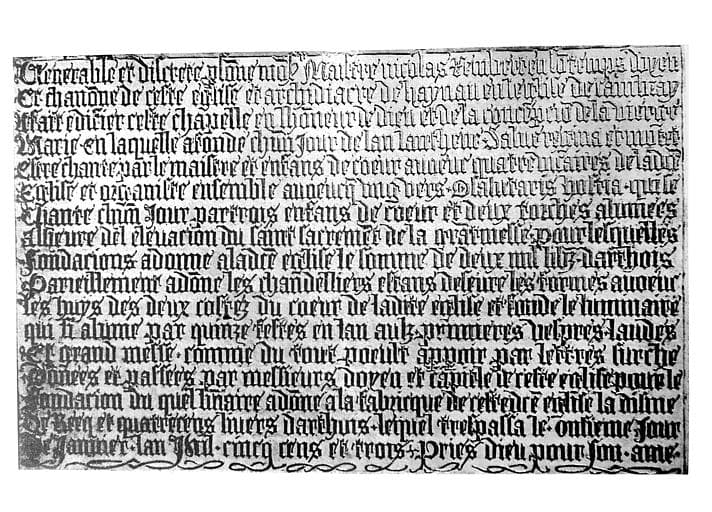 Venerable et discrete psone mons Maistre nicolas Rembert en so temps doyen
Et chanone de ceste eglise et archidiacre de haynau en leglise de cambray
A fait edifier ceste chapelle en lhoneur de dieu et de la concepcio de la vierge
Marie en laquelle a fonde chun Jour de lan la Salve regina et motet
Estre chante par le maistre et enfans de coeur avoeuc quatre vicaires de ladce
Eglise et organiste ensemble avoeucq ung vers O salutaris hostia qui se
Chante chun Jour par trois enfans de coeur et deux torches alumees
A lheure del elevacion du saint sacrement de la grantmesse pour lesquelles
Fondacions a donne a ladce eglise le somme de deux mil libz darthois
Pareillement a done les chandelliers estans deseure les formes avoeuc
les huys des deux costez du coeur de ladite eglise et fonde le luminaire
qui se alume par quinze festes en lan aulx premieres vespres laudes
Et grand messe comme du tout poeult apparoir par lettres surche
Donees et passees par messieurs doyen et capitele de ceste eglise pour le
Fondacion du quel luinaire a done a la fabricque de cestedce eglise la disme
De Recq et quatrecens livers darthois lequel trespassa le onsieme Jour
De Janvier lan Mil cincq cens et trois Pries dieu pour son ame